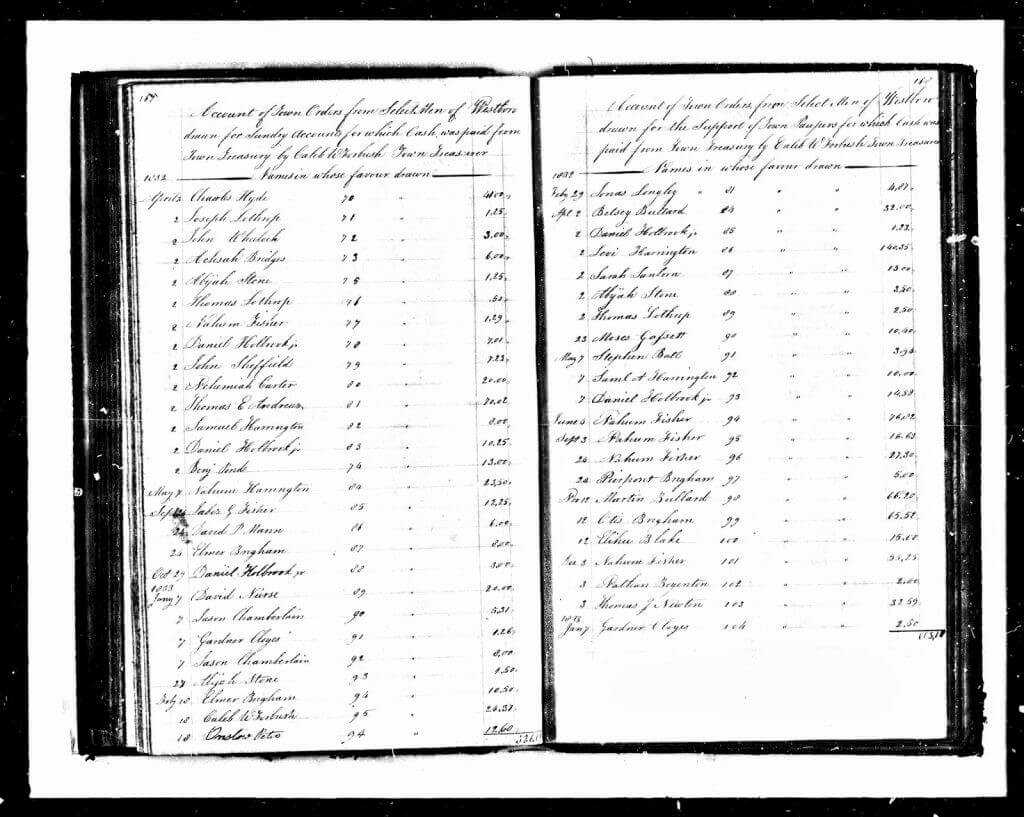 Account of Town Orders from Select Men of Westboro
drawn for Sundry Accounts for which Cash was paid from
Town Treasury by Caleb W Forbush Town Treasurer
1832 Names in whose favour drawn
April 2 Charles Hyde 70 " 4.00
2 Joseph Lothrop 71 " 1.25
2 John 72 " 3.00
2 Bridges 73 " 6.00
2 Abijah Stone 75 " 1.25
2 Thomas Lothrop 76 " .50
2 Nahum Fisher 77 " 1.29
2 Daniel Holbrook jr 78 " 7.01
2 John Sheffield 79 " 7.23
2 Nehemiah Carter 80 " 20.00
2 Thomas E Andrews 81 " 70.02
2 Samuel Harrington 82 " 8.00
2 Daniel Holbrook jr 83 " 10.25
2 Benj 74 " 13.00
May 7 Nahum Harrington 84 " 23.50
Sept 24 Jabez G Fisher 85 " 12.25
24 David P. Mann 86 " 6.00
24 Elmer Brigham 87 " 8.00
Oct 29 Daniel Holbrook jr 88 " 3.00
1833
Jany 7 David Nurse 89 " 20.00
7 Jason Chamberlain 90 " 5.31
7 Gardner Cloyes 91 " 1.26
7 Jason Chamberlain 92 " 8.00
27 Abijah Stone 93 "
Feby 18 Elmer Brigham 94 " 10.50
18 Caleb W Forbush 95 "
18 Onslow Peters 94 " 12.60
Account of Town Orders from Select Men of Westboro
drawn for the Support of Town Paupers for which Cash was
paid from Town Treasury by Caleb W Forbush Town Treasurer
1832 Names in whose favour drawn
Feby 29 Jonas Longley " 81 " 4.87
Apl 2 Betsey Bullard 84 " " 32.00
2 Daniel Holbrook jr 85 " "
2 Levi Harrington 86 " " 140.35
2 Sarah 87 " " 13.00
2 Abijah Stone 88 " " 3.50
2 Thomas Lothrop 89 " " 2.50
23 Moses Gassett 90 " "
May 7 Stephen Ball 91 " "
7 Saml A Harrington 92 " " 10.00
7 Daniel Holbrook jr 93 " "
June 4 Nahum Fisher 94 " "
Sept 3 Nahum Fisher 95 " "
24 Nahum Fisher 96 " " 27.30
24 Pierpont Brigham 97 " " 5.00
12 Martin Bullard 98 " " 66.20
12 Otis Brigham 99 " " 65.52
12 Elihu Blake 100 " " 15.00
3 Nahum Fisher 101 " "
3 Nathan 102 " " 2.00
3 Thomas J Newton 103 " " 32.59
1833
Jany 7 Gardner Cloyes 104 " " 2.50